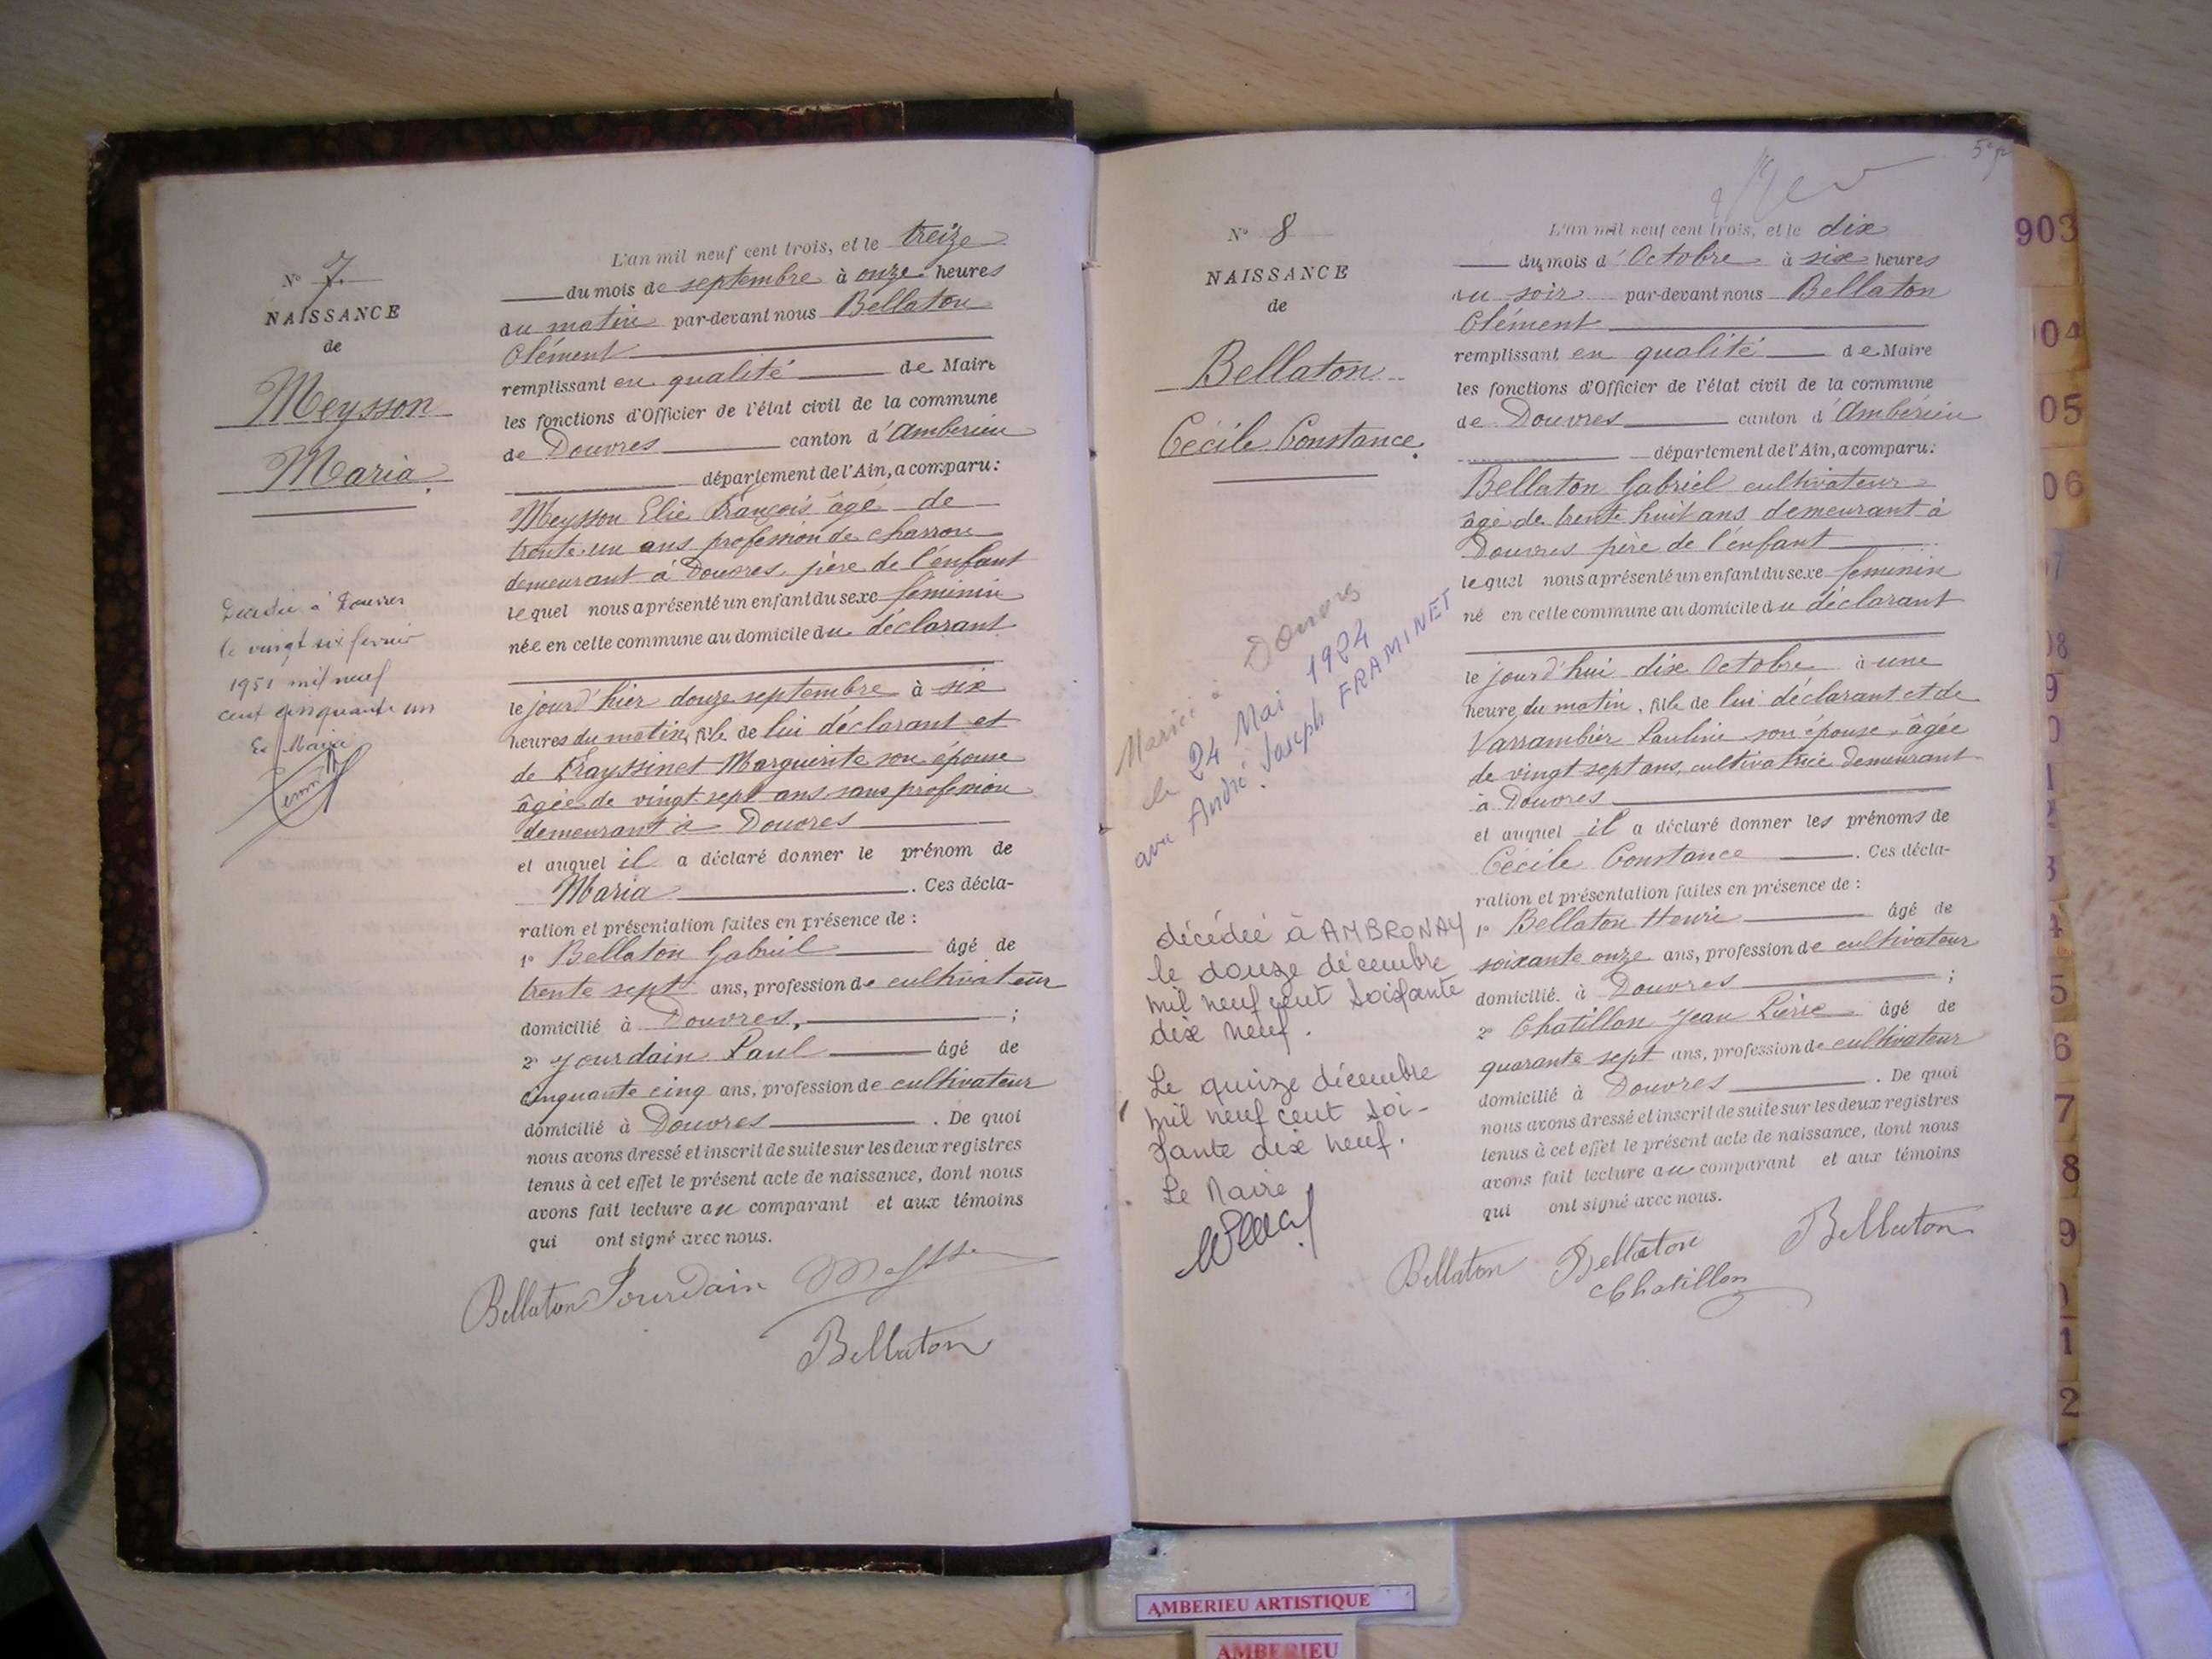 N° 7
NAISSANCE
de
Meysson
Maria
Décédée à Douvres
le vingt six février
1951 mil neuf
cent cinquante un
Le Maire
L'an mil neuf cent trois, et le treize
du mois de septembre à onze heures
du matin par-devant nous Bellaton
Clément
remplissant en qualité de Maire
les fonctions d'Officier de l'état civil de la commune
de Douvres canton d'Ambérieu
département de l'Ain, a comparu:
Meysson Elie François âgé de
trente-un ans profession de charron
demeurant à Douvres, père de l'enfant
lequel nous a présenté un enfant du sexe féminin
née en cette commune au domicile du déclarant
le jour d'hier douze septembre à six
heures du matin, fille de lui déclarant et
de Frayssinet Marguerite son épouse
âgée de vingt-sept ans sans profession
demeurant à Douvres
et auquel il a déclaré donner le prénom de
Maria. Ces décla-
ration et présentation faites en présence de :
1° Bellaton Gabriel âgé de
trente sept ans, profession de cultivateur
domicilié à Douvres, ;
2° Jourdain Paul âgé de
cinquante cinq ans, profession de cultivateur
domicilié à Douvres. De quoi
nous avons dressé et inscrit de suite sur les deux registres
tenus à cet effet le présent acte de naissance, dont nous
avons fait lecture au comparant et aux témoins
qui ont signé avec nous.
Bellaton Jourdain
Bellaton
5e
N° 8
NAISSANCE
de
Bellaton
Cécile Constance.
Mariée à Douvres
le 24 Mai 1924
avec André Joseph FRAMINET
décédée à AMBRONAY
le douze décembre
mil neuf cent soixante
dix neuf.
Le quinze décembre
mil neuf cent soi-
xante dix neuf.
Le Maire
L'an mil neuf cent trois, et le dix
du mois d'Octobre à six heures
du soir par-devant nous Bellaton
Clément
remplissant en qualité de Maire
les fonctions d'Officier de l'état civil de la commune
de Douvres canton d'Ambérieu
département de l'Ain, a comparu:
Bellaton Gabriel cultivateur
âgé de trente huit ans demeurant à
Douvres père de l'enfant
lequel nous a présenté un enfant du sexe feminin
né en cette commune au domicile du déclarant
le jour d'hui dix Octobre à une
heure du matin, fille de lui déclarant et de
Varrambier Pauline son épouse âgée
de vingt sept ans, cultivatrice demeurant
à Douvres
et auquel il a déclaré donner les prénoms de
Cécile Constance. Ces décla-
ration et présentation faites en présence de :
1° Bellaton Henri âgé de
soixante onze ans, profession de cultivateur
domicilié à Douvres ;
2° Chatillon Jean Pierre âgé de
quarante sept ans, profession de cultivateur
domicilié à Douvres. De quoi
nous avons dressé et inscrit de suite sur les deux registres
tenus à cet effet le présent acte de naissance, dont nous
avons fait lecture au comparant et aux témoins
qui ont signé avec nous.
Bellaton Bellaton Bellaton
Chatillon
903
04
05
06
7
08
9
0
1
2
3
4
5
6
7
8
9
1
2
AMBERIEU ARTISTIQUE
AMBERIEU